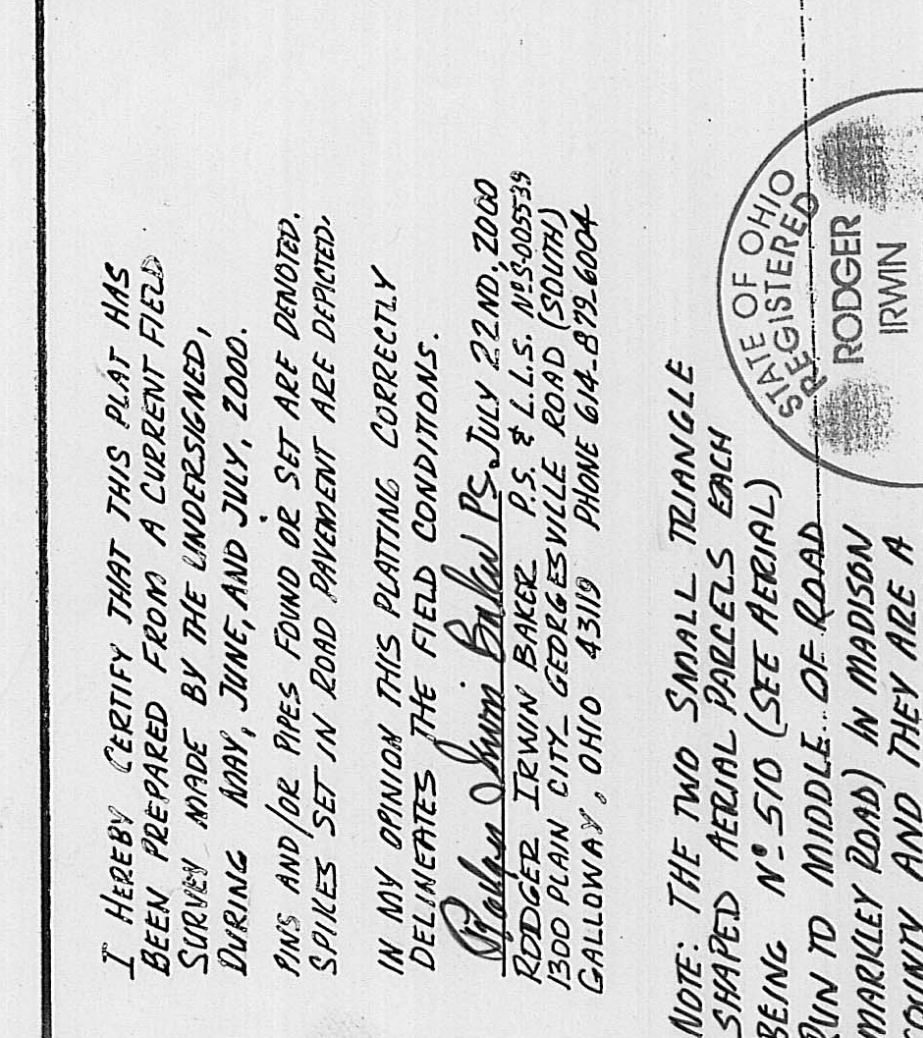 I HEREBY CERTIFY THAT THIS PLAT HAS
BEEN PREPARED FROM A CURRENT FIELD
SURVEY MADE BY THE UNDERSIGNED,
DURING MAY, JUNE, AND JULY, 2000.
PINS AND/OR PIPES FOUND OR SET ARE DENOTED.
SPIKES SET IN ROAD PAVEMENT ARE DEPICTED.
IN MY OPINION THIS PLATTING CORRECTLY
DELINEATES THE FIELD CONDITIONS.
Rodger Irwin Baker P.S. JULY 22ND, 2000
RODGER IRWIN BAKER P.S. & L.L.S. Nº S-005539
1300 PLAIN CITY GEORGESVILLE ROAD (SOUTH)
GALLOWAY, OHIO 43119 PHONE 614-879-6004
NOTE: THE TWO SMALL TRIANGLE
SHAPED AERIAL PARCELS EACH
BEING Nº 510 (SEE AERIAL)
RUN TO MIDDLE OF ROAD
MARKLEY ROAD) IN MADISON
COUNTY AND THEY ARE A
STATE OF OHIO
REGISTERED
RODGER
IRWIN